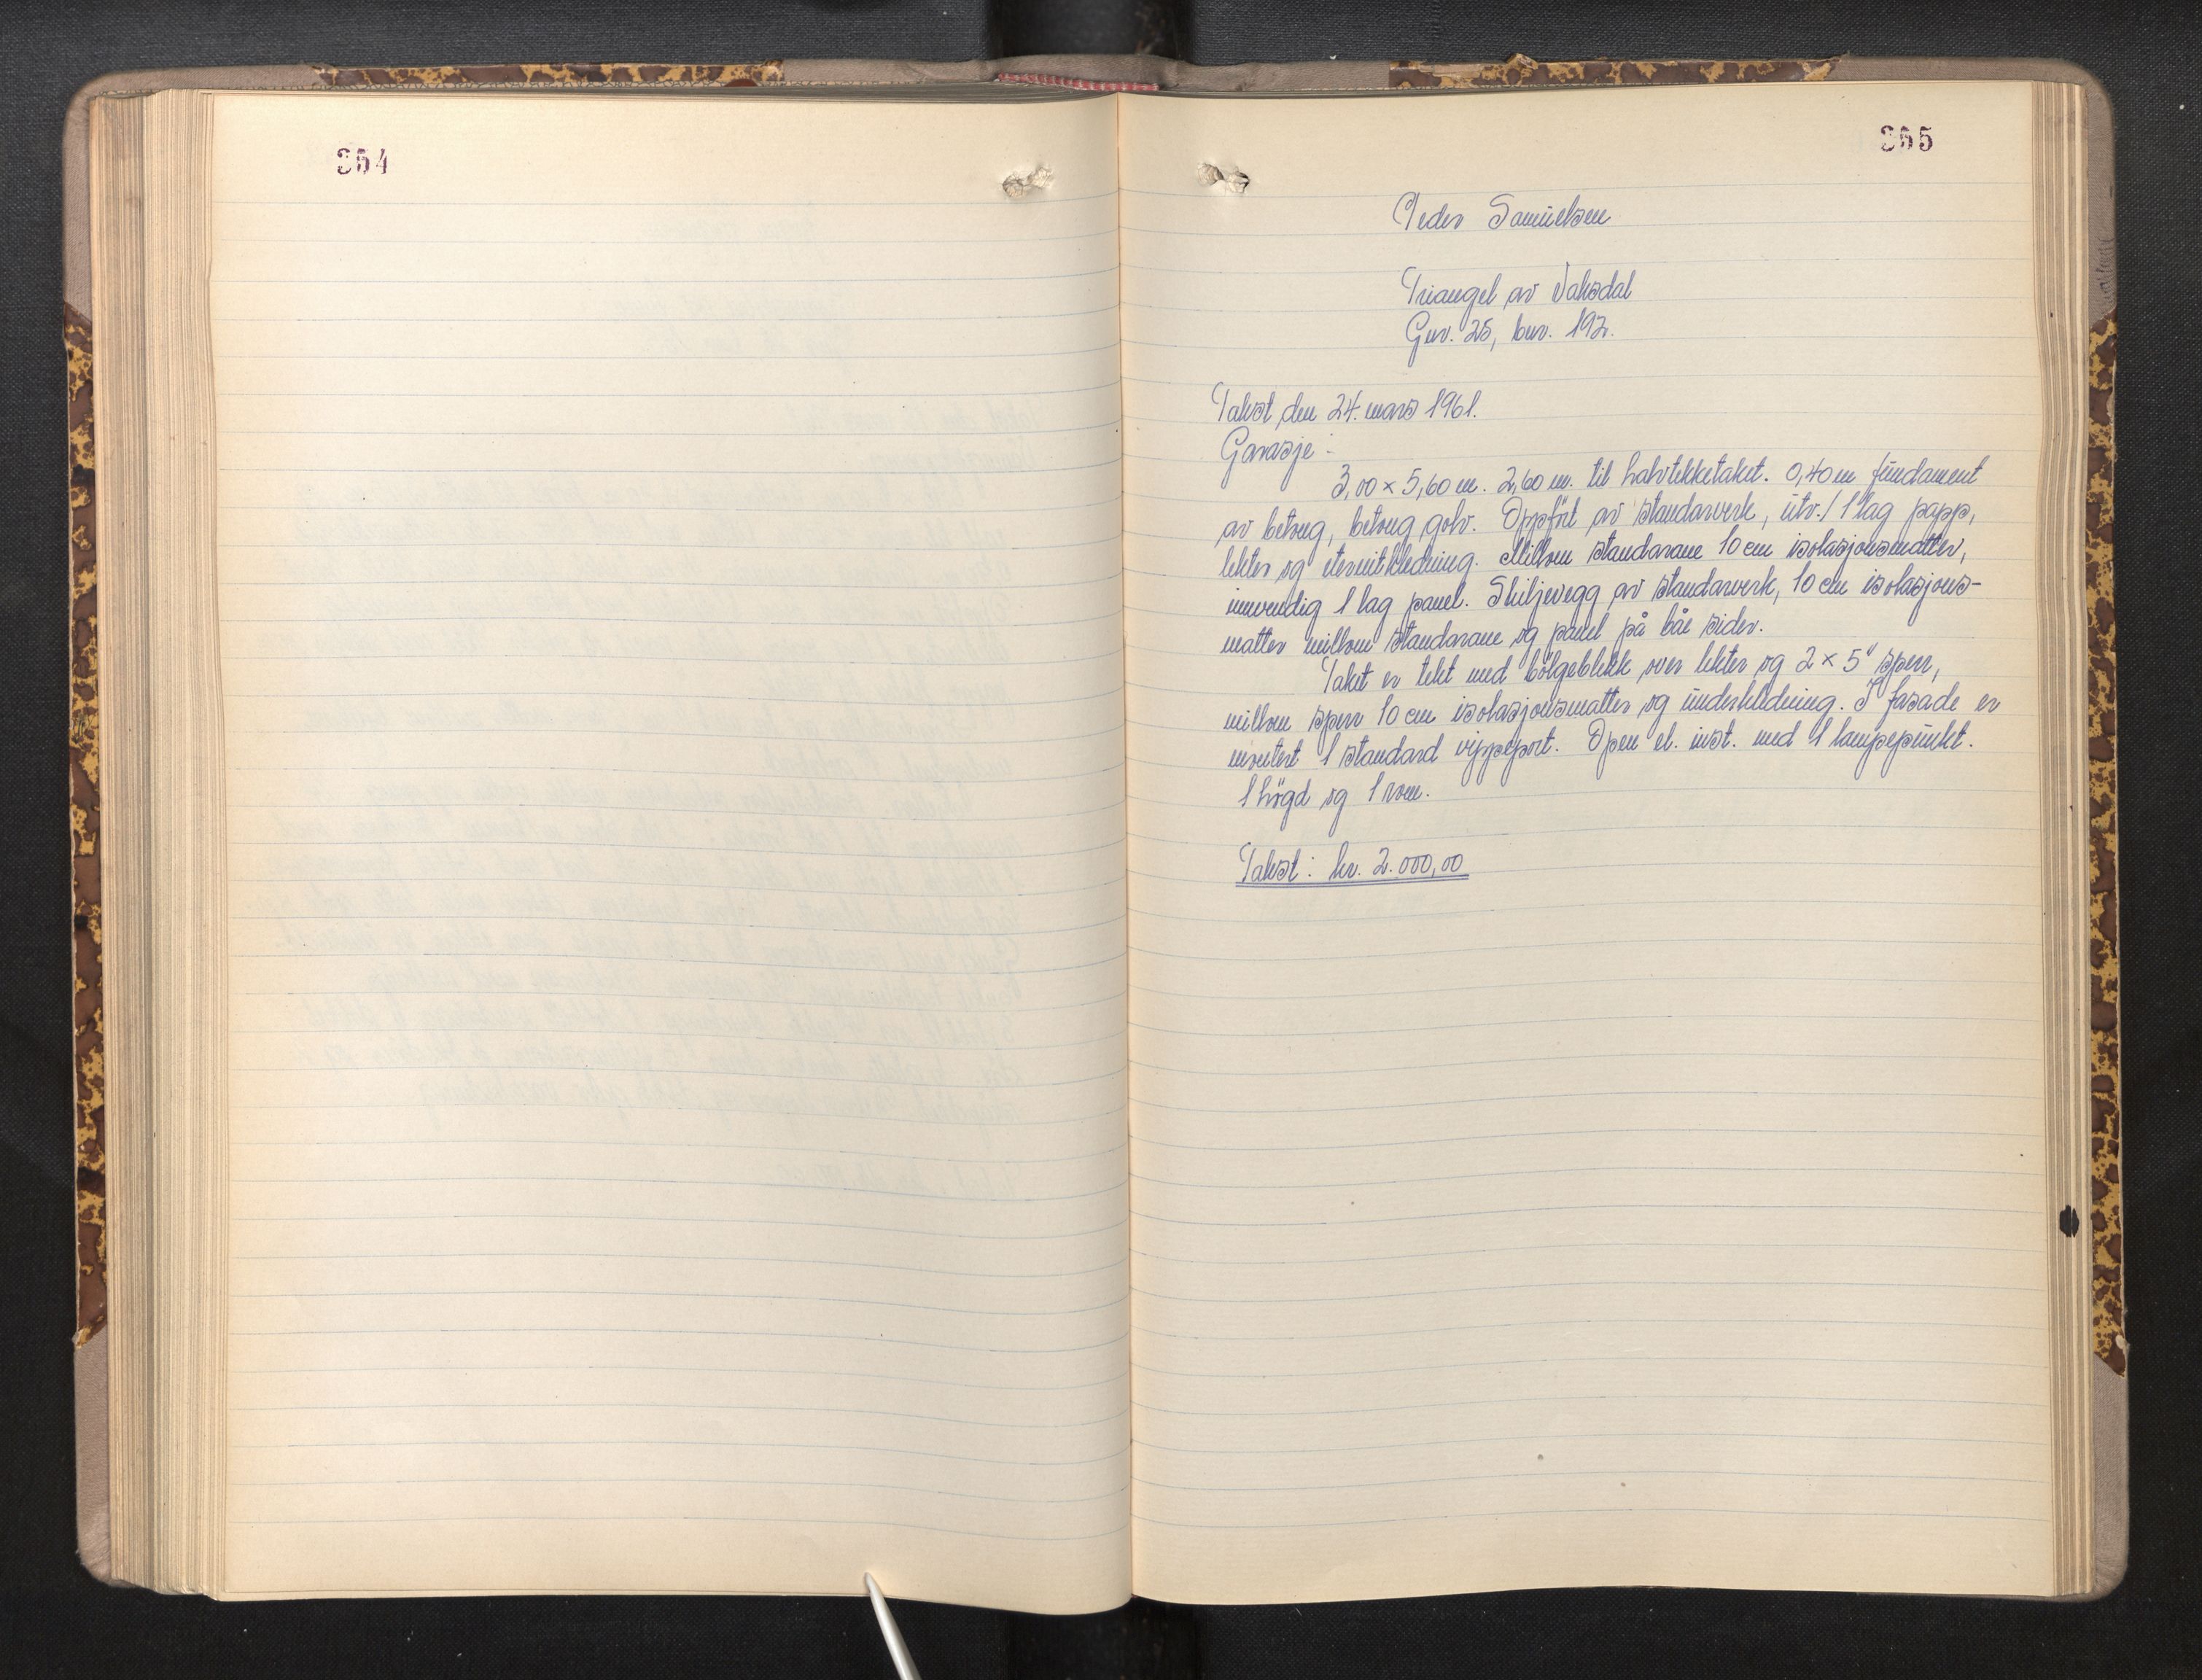 354
355
Peder Samuelsen
Triangel av Vaksdal
Gnr. 25, bnr. 192.
Takst den 24. mars 1961.
Garasje:
3,00 x 5,60 m. 2,60 m. til halvtekketaket. 0,40 m fundament
av betong, betong golv. Oppført av standarverk, utv./ 1 lag papp,
lekter og eternitkledning. Millom standarane 10 cm isolasjonsmatter,
innvendig 1 lag panel. Skiljevegg av standarverk, 10 cm isolasjons-
matter millom standarane og panel på båe sider.
Taket er tekt med bölgeblekk over lekter og 2 x 5" sperr,
millom sperr 10 cm isolasjonsmatter og underkledning. I fasade er
montert 1 standard vippeport. Open el. inst. med 1 lampepunkt.
1 högd og 1 rom.
Takst: kr. 2.000,00